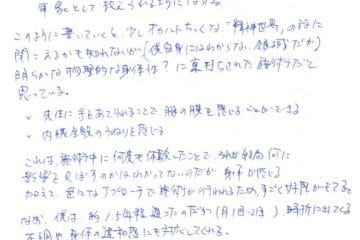 事象として捉えられるようになる。
このように書いていくと、少しオカルトちっくな「精神世界」の話に
聞こえるかも知れないが(僕自身にはわからない領域だが)
明らかな物理的な身体性?に裏付けされた施術だと
思っている。
✓ 先生に手をあてられることで、腹の膜を感じることができる
✓ 内臓全般のうねりを感じる
これは、施術中に何度も体験したことで、それが結局何に
影響を及ぼすのかはわかってないのだが、身体が感じる
に色々なアプローチで施術が行われるため、すごく好感がもてる。
なお、僕は約1.5年程通ったのだが(月1回-2回)、時折に出てくる
不調や身体の違和感にも対応してくれる。